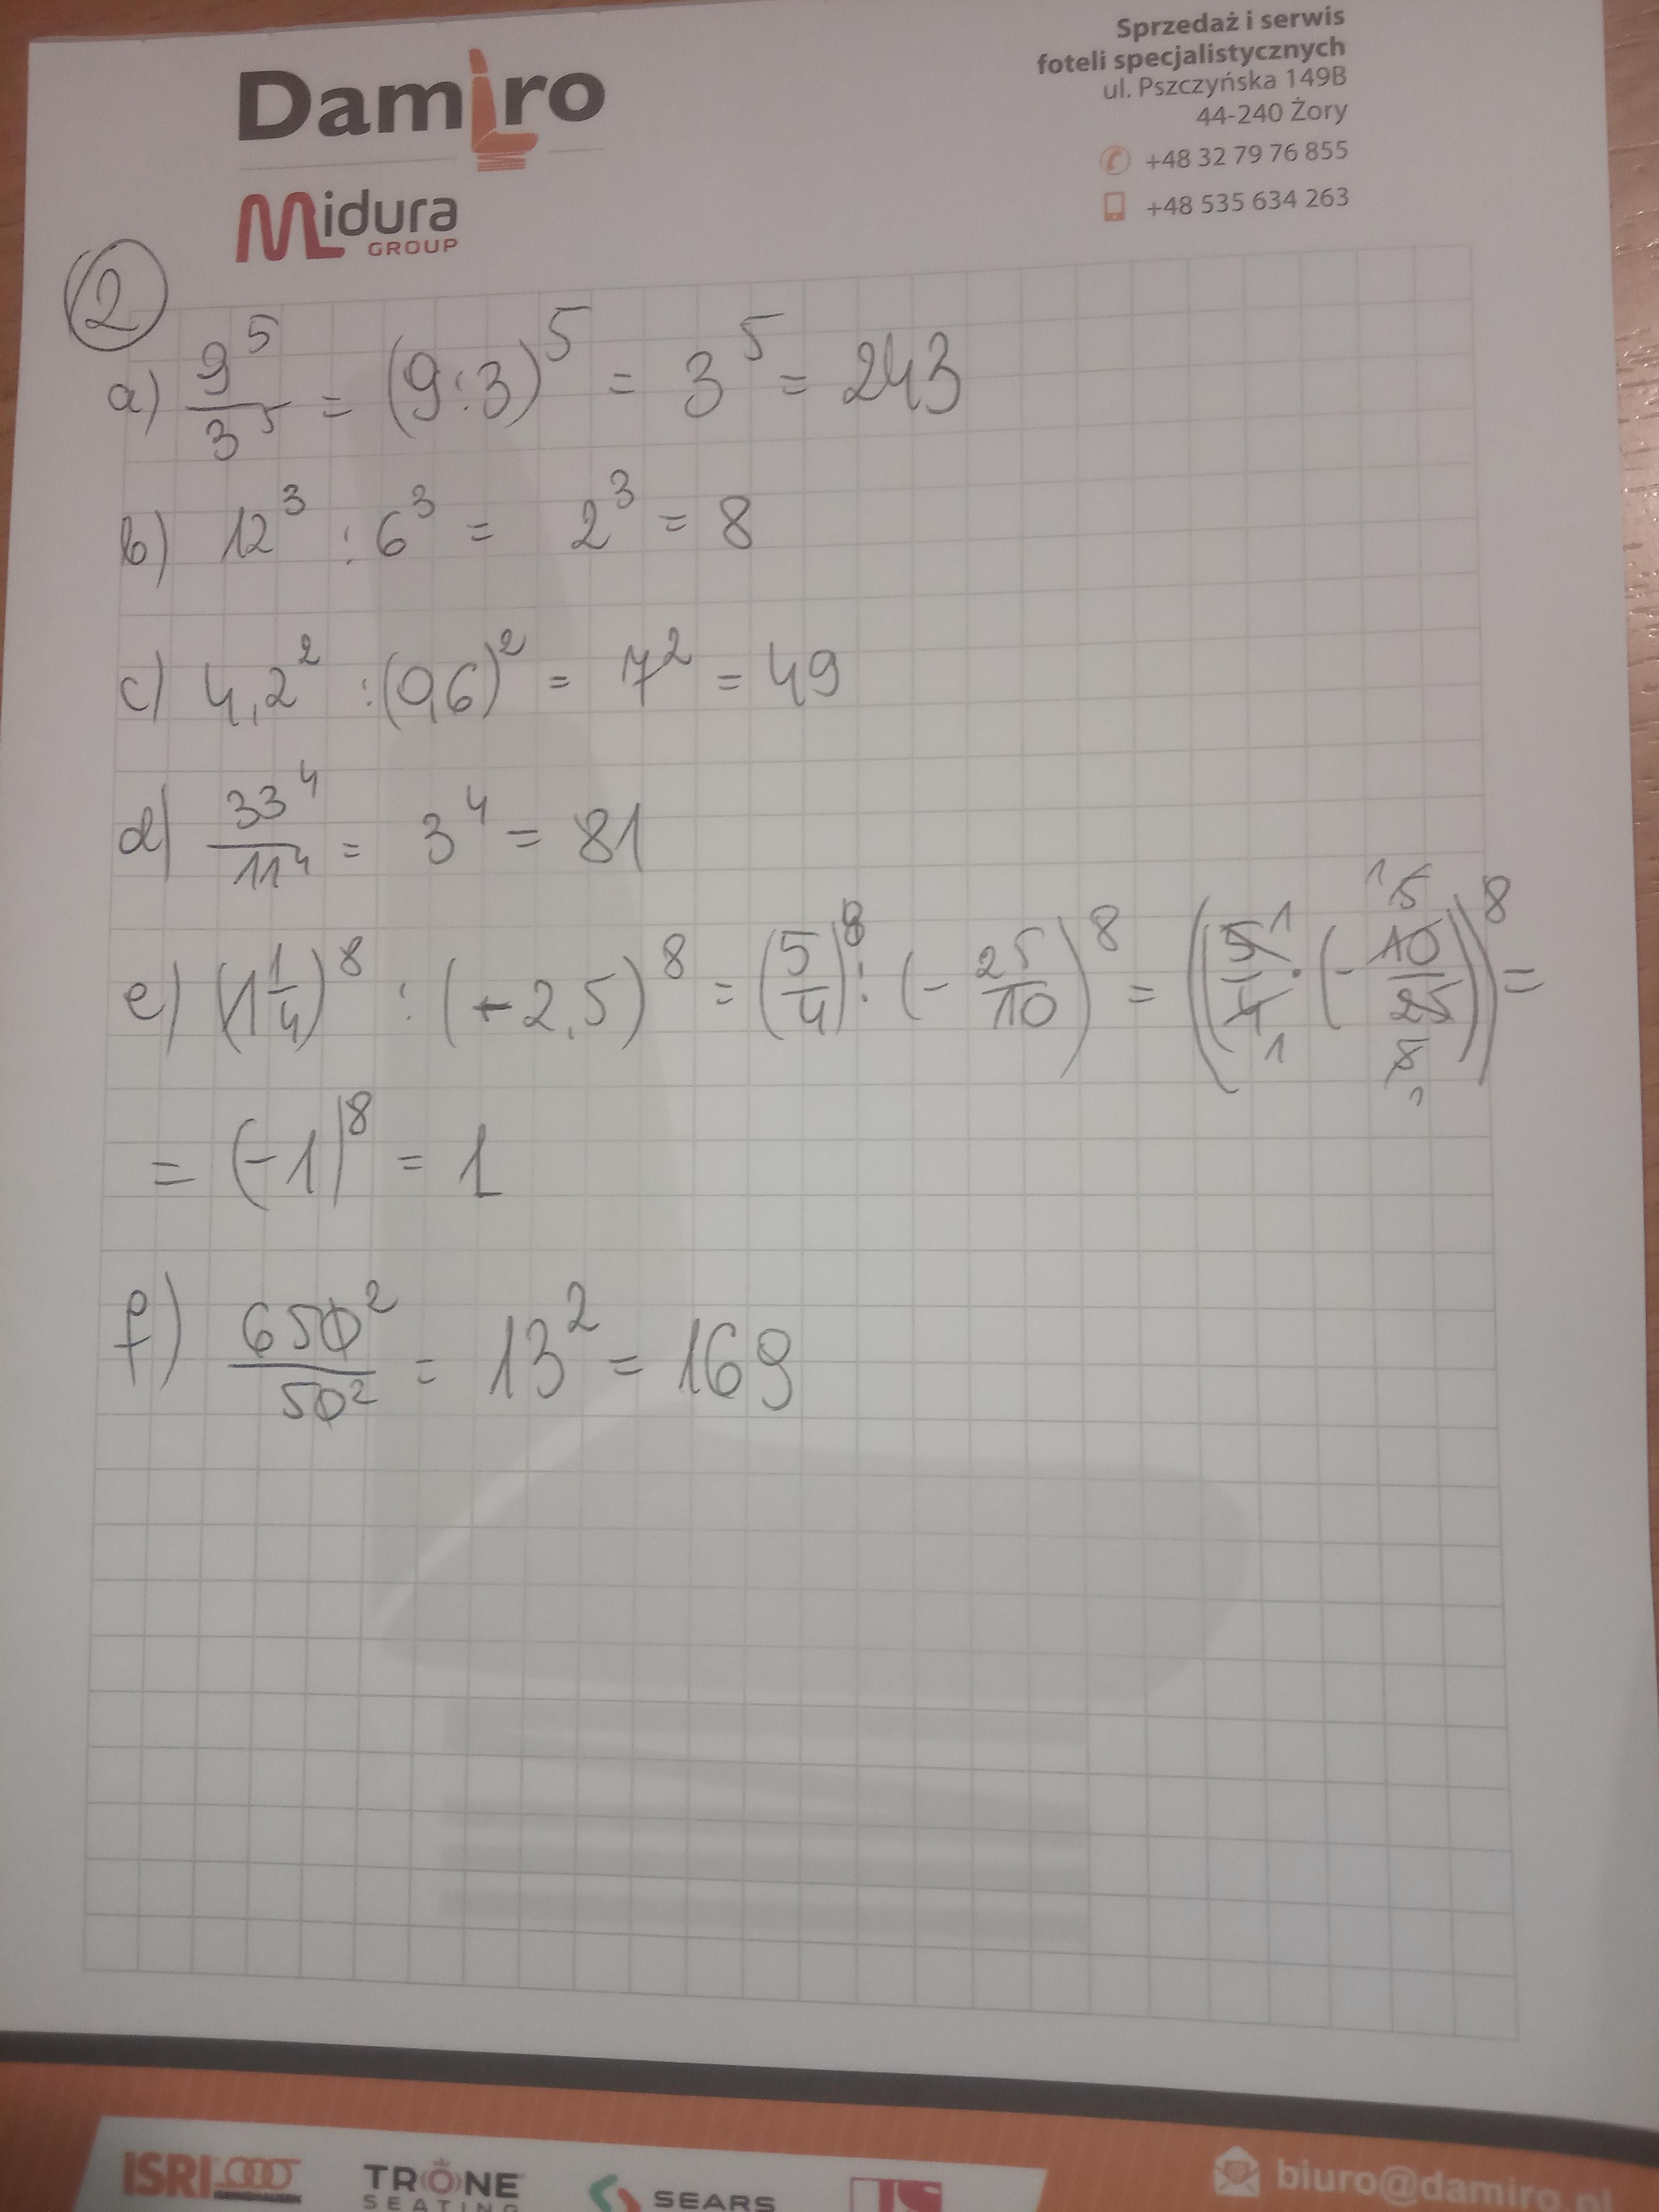 Sprzedaż i serwis
foteli specjalistycznych
ul. Pszczyńska 149B
44-240 Żory
+48 32 79 76 855
+48 535 634 263
Damiro
Midura
GROUP
2
a) 9^5/3^5 = (9:3)^5 = 3^5 = 243
b) 12^3 : 6^3 = 2^3 = 8
c) 4,2^2 : (0,6)^2 = 7^2 = 49
d) 33^4/11^4 = 3^4 = 81
e) (1 1/4)^8 : (-2,5)^8 = (5/4)^8 : (-25/10)^8 = (5/4 · (-10/25))^8 =
= (-1)^8 = 1
f) 650^2/50^2 = 13^2 = 169
ISRI
TRONE
SEATING
SEARS
biuro@damiro.pl